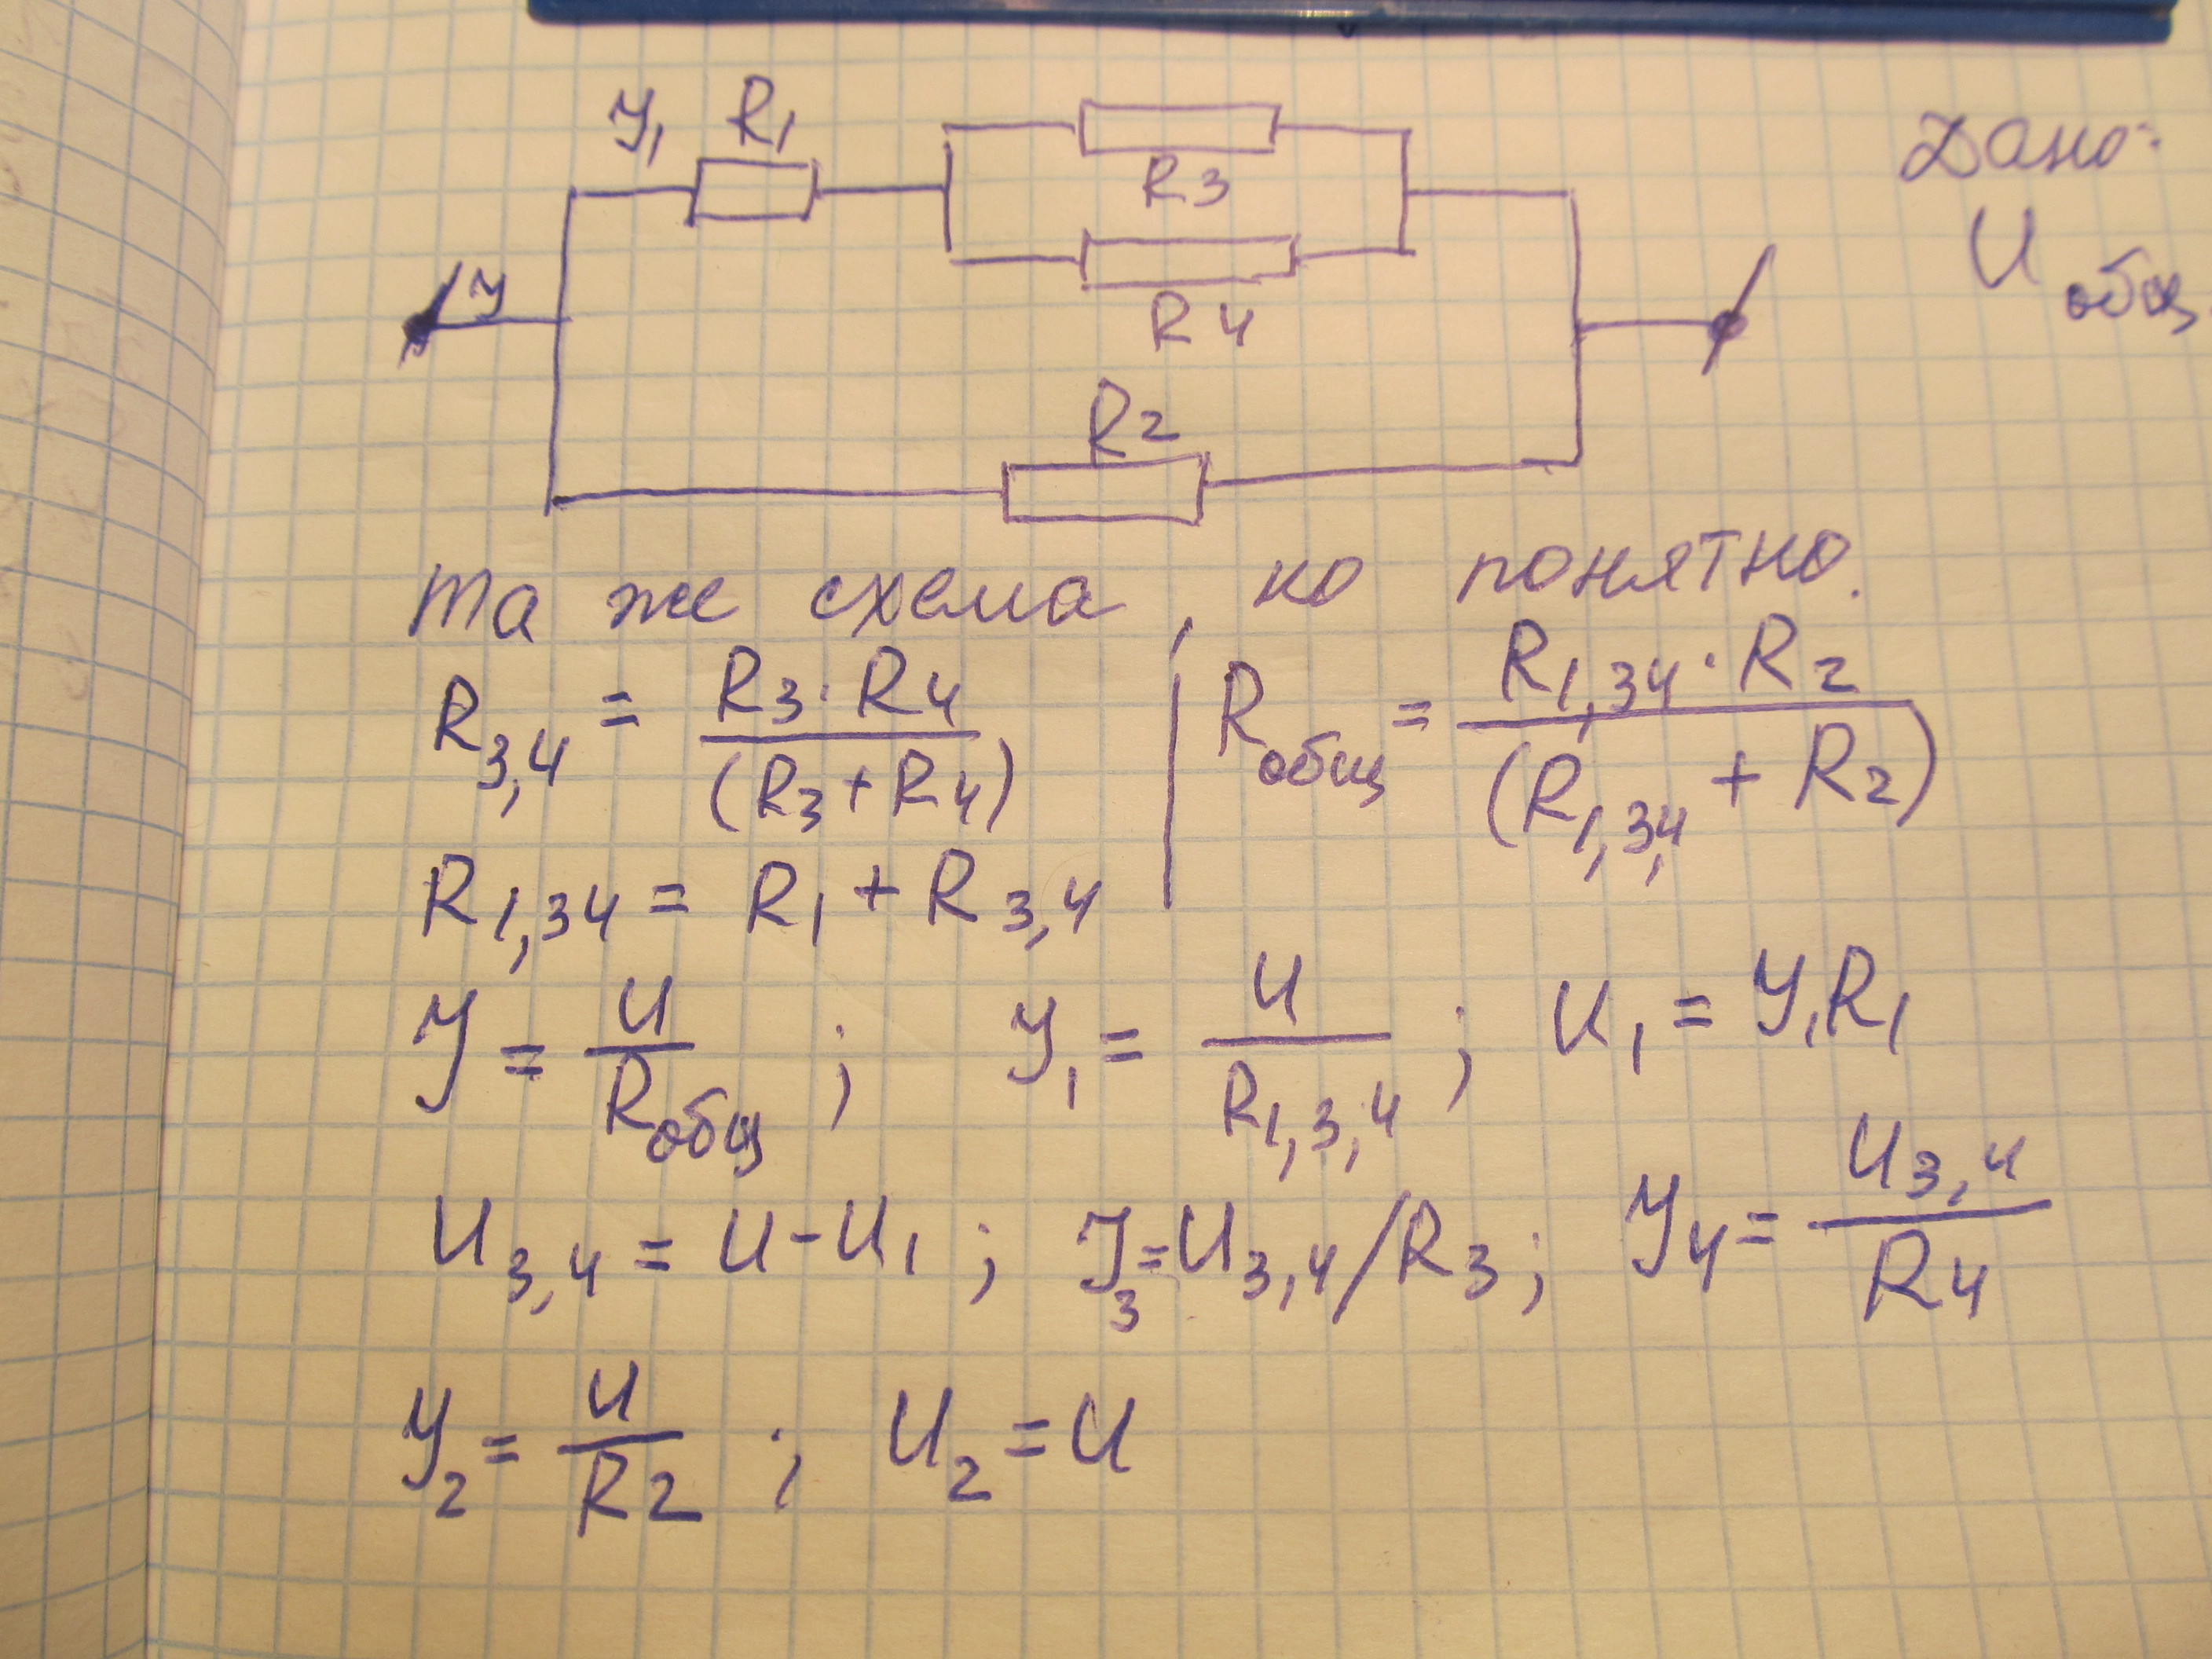 У₁ R₁
R3
Дано:
U общ
У
R4
R2
Та же схема, но понятно.
R₃,₄ = R3 · R4 / (R3 + R4)
Rобщ = R₁,₃₄ · R2 / (R₁,₃,₄ + R2)
R₁,₃₄ = R₁ + R₃,₄
У = U / Rобщ ; У₁ = U / R₁,₃,₄ ; U₁ = У₁R₁
U₃,₄ = U - U₁ ; У₃ = U₃,₄ / R3 ; У₄ = U₃,₄ / R4
У₂ = U / R2 ; U₂ = U